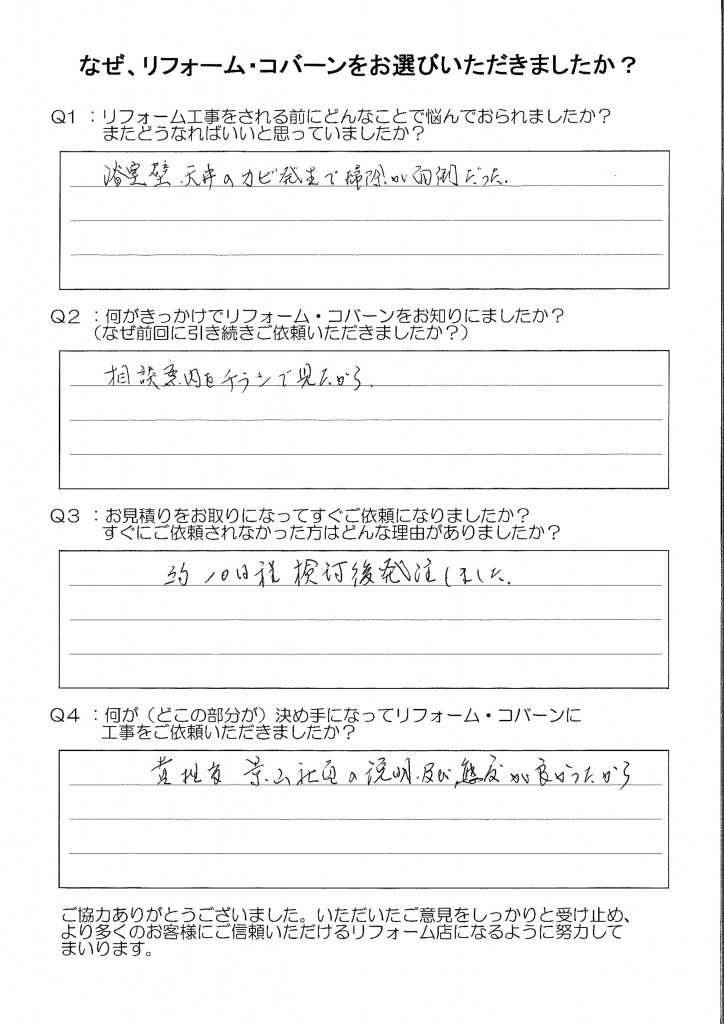 なぜ、リフォーム・コバーンをお選びいただきましたか？
Q1 ：リフォーム工事をされる前にどんなことで悩んでおられましたか？
またどうなればいいと思っていましたか？
浴室壁、天井のカビ発生で掃除が面倒だった．
Q2 ：何がきっかけでリフォーム・コバーンをお知りにましたか？
（なぜ前回に引き続きご依頼いただきましたか？）
相談案内をチラシで見たから．
Q3 ：お見積りをお取りになってすぐご依頼になりましたか？
すぐにご依頼されなかった方はどんな理由がありましたか？
約10日程 検討後発注しました．
Q4 ：何が（どこの部分が）決め手になってリフォーム・コバーンに
工事をご依頼いただきましたか？
社員の説明及び態度が良かったから
ご協力ありがとうございました。いただいたご意見をしっかりと受け止め、
より多くのお客様にご信頼いただけるリフォーム店になるように努力して
まいります。